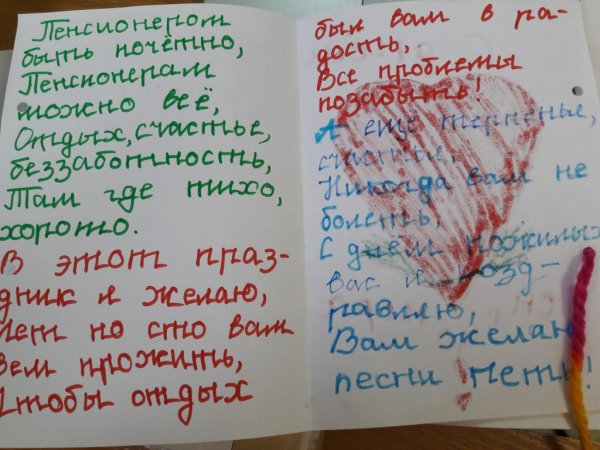 Пенсионером
быть почётно,
Пенсионерам
можно всё,
Отдых, счастье,
беззаботность,
Там где тихо,
хорошо.
В этот праз-
дник я желаю,
Лет по сто вам
всем прожить,
Чтобы отдых
был вам в ра-
дость,
Все проблемы
позабыть!
А еще терпенье,
счастья,
Никогда вам не
болеть,
С днём пожилых
вас я позд-
равляю,
Вам желаю
песни петь!